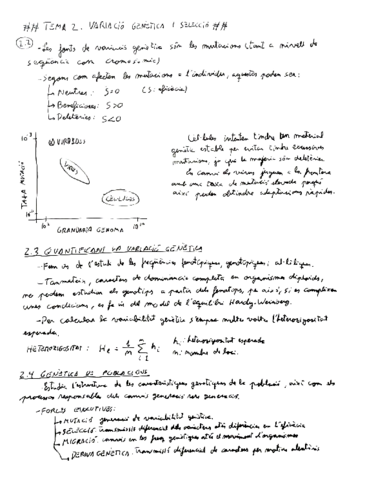 ## TEMA 2. VARIACIÓ GENÈTICA I SELECCIÓ ##
2.2 - Les fonts de variació genètica són les mutacions (tant a nivell de
seqüència com cromosòmic)
- Segons com afecten les mutacions a l'individu, aquestes poden ser:
Neutres: S=0 (S: eficàcia)
Beneficioses: S>0
Deletèries: S<0
VIROIDS
VIRUS
CÈL·LULES
TAXA MUTACIÓ
GRANDÀRIA GENOMA
Cèl·lules intenten tindre un material
genètic estable per evitar tindre excessives
mutacions, ja que la majoria són deletèries.
En canvi els virus juguen a la frontera
amb una taxa de mutació elevada perquè
així poden obtindre adaptacions ràpides.
2.3 QUANTIFICANT LA VARIACIÓ GENÈTICA
- Fem ús de l'estudi de les freqüències fenotípiques, genotípiques, al·lèliques.
- Tanmateix, caràcters de dominància completa en organismes diploides,
no podem estudiar els genotips a partir dels fenotips, per això, si es compleixen
unes condicions, es fa ús del model de l'equilibri Hardy-Weinberg.
- Per calcular la variabilitat genètica s'empra molta volta l'heterozigositat
esperada.
HETEROZIGOSITAT: He = 1/m Σ hi
hi: heterozigositat esperada
m: nombre de loci
2.4 GENÈTICA DE POBLACIONS
Estudia l'estructura de les característiques genètiques de la població, així com els
processos responsables dels canvis generació rere generació.
- FORCES EVOLUTIVES:
MUTACIÓ: generació de variabilitat genètica.
SELECCIÓ: transmissió diferencial dels caràcters atés diferències en l'eficàcia
MIGRACIÓ: canvis en les freq genètiques atés el moviment d'organismes
DERIVA GENÈTICA: transmissió diferencial de caràcters per motius aleatoris